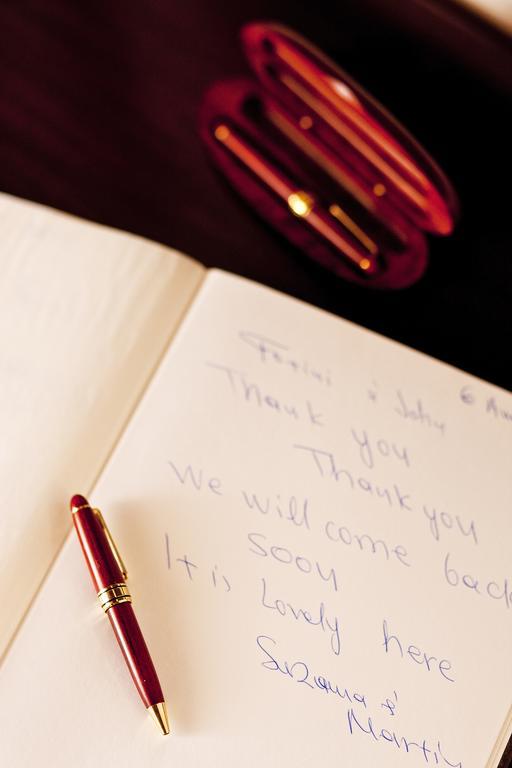 6 Au
& John
Thank you
Thank you
We will come back
soon
It is Lovely here
Suzana &
Martin